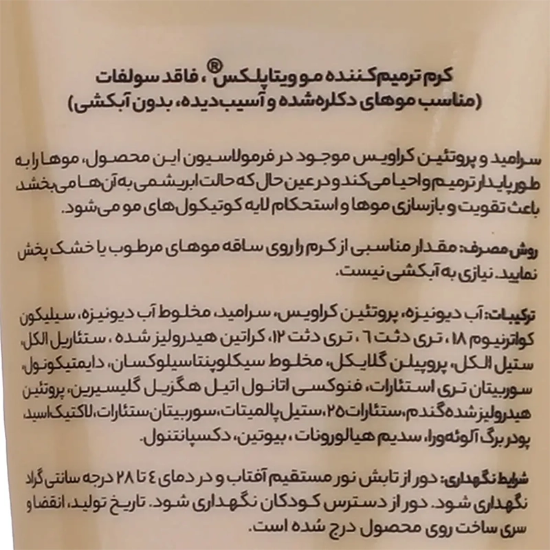 کرم ترمیم‌کننده مو ویتاپلکس®، فاقد سولفات
(مناسب موهای دکلره‌شده و آسیب‌دیده، بدون آبکشی)
سرامید و پروتئین کراویس موجود در فرمولاسیون این محصول، موها را به
طور پایدار ترمیم و احیا می‌کند و در عین حال که حالت ابریشمی به آن‌ها می‌بخشد
باعث تقویت و بازسازی موها و استحکام لایه کوتیکول‌های مو می‌شود.
روش مصرف: مقدار مناسبی از کرم را روی ساقه موهای مرطوب یا خشک پخش
نمایید. نیازی به آبکشی نیست.
ترکیبات: آب دیونیزه، پروتئین کراویس، سرامید، مخلوط آب دیونیزه، سیلیکون
کواترنیوم ۱۸، تری دثت ٦، تری دثت ۱۲، کراتین هیدرولیز شده، ستئاریل الکل،
ستیل الکل، پروپیلن گلایکل، مخلوط سیکلوپنتاسیلوکسان، دایمتیکونول،
سوربیتان تری استئارات، فنوکسی اتانول اتیل هگزیل گلیسیرین، پروتئین
هیدرولیز شده گندم، ستئارات ۲۵، ستیل پالمیتات، سوربیتان ستئارات، لاکتیک اسید،
پودر برگ آلوئه‌ورا، سدیم هیالورونات، بیوتین، دکسپانتنول.
شرایط نگهداری: دور از تابش نور مستقیم آفتاب و در دمای ٤ تا ۲۸ درجه سانتی گراد
نگهداری شود. دور از دسترس کودکان نگهداری شود. تاریخ تولید، انقضا و
سری ساخت روی محصول درج شده است.